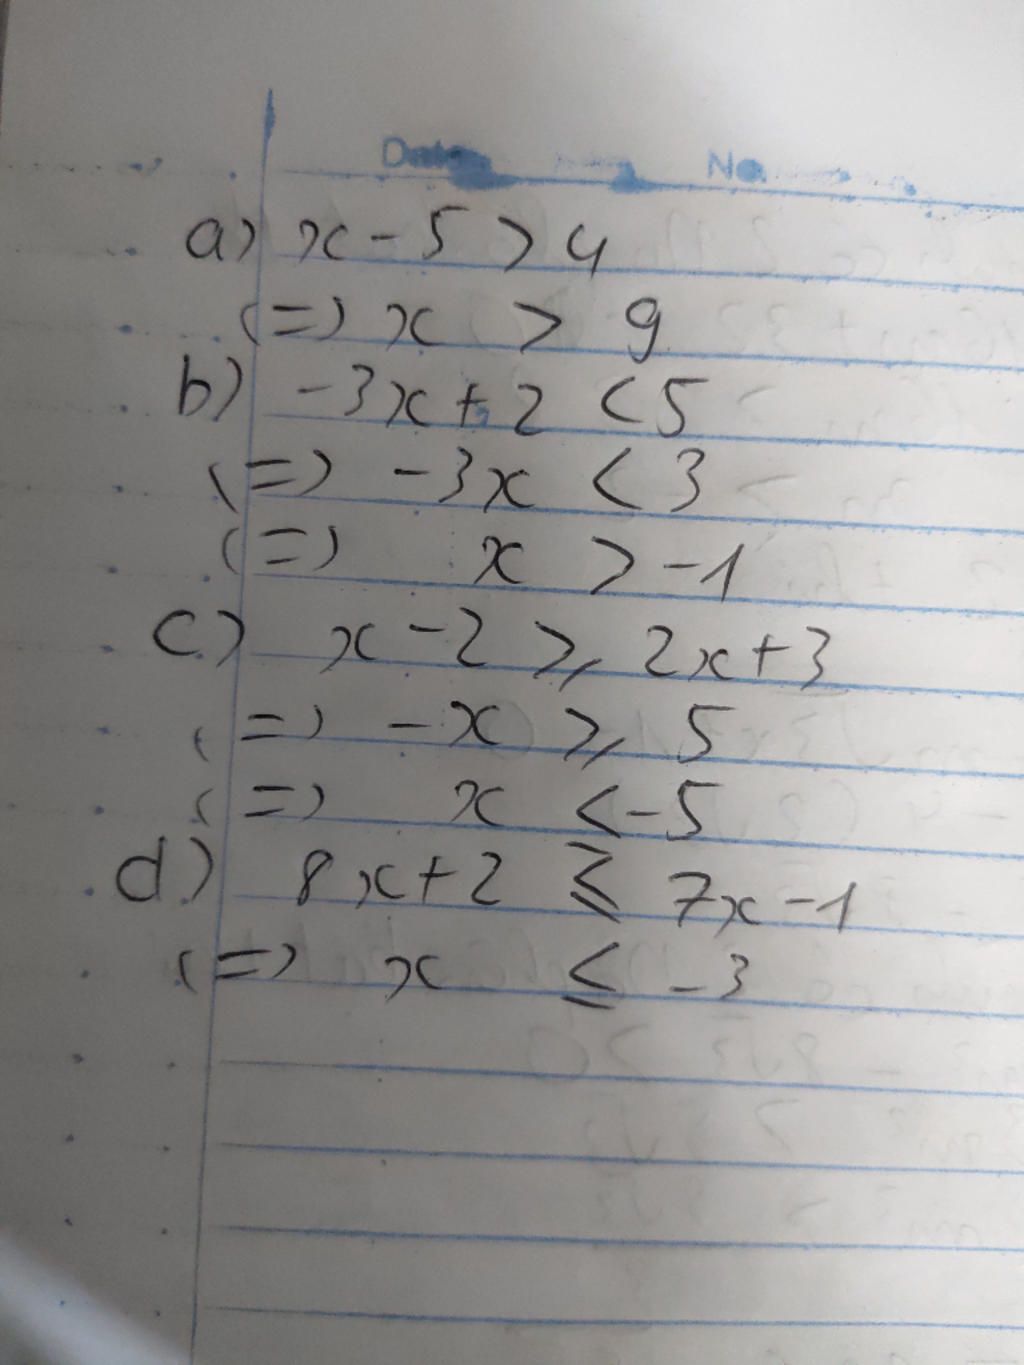 Date No.
a) x - 5 > 4
(=) x > 9
b) -3x + 2 < 5
(=) -3x < 3
(=) x > -1
c) x - 2 ≥ 2x + 3
(=) -x ≥ 5
(=) x < -5
d) 8x + 2 ≤ 7x - 1
(=) x ≤ -3